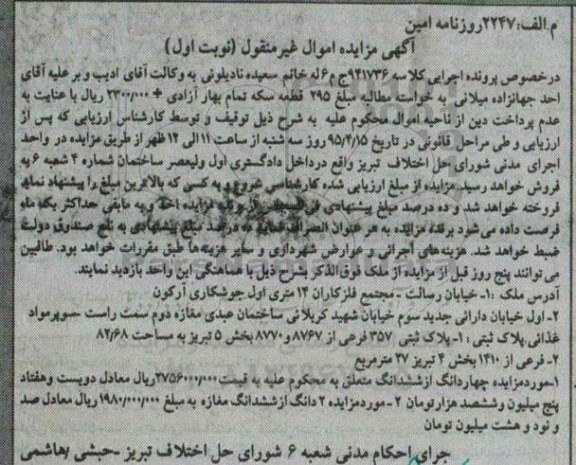 م.الف:۲۲۴۷روزنامه امین
آگهی مزایده اموال غیرمنقول (نوبت اول)
درخصوص پرونده اجرایی کلاسه ۹۴۱۷۳۶ج م۶له خانم سعیده نادیلوئی به وکالت آقای ادیب و بر علیه آقای
احد جهانزاده میلانی به خواسته مطالبه مبلغ ۲۹۵ قطعه سکه تمام بهار آزادی + ۲۳۰۰/۰۰۰ ریال با عنایت به
عدم پرداخت دین از ناحیه اموال محکوم علیه به شرح ذیل توقیف و توسط کارشناس ارزیابی که پس از
ارزیابی و طی مراحل قانونی در تاریخ ۹۵/۴/۱۵ روز سه شنبه از ساعت ۱۱الی ۱۲ظهر از طریق مزایده در واحد
اجرای مدنی شورای حل اختلاف تبریز واقع درداخل دادگستری اول ولیعصر ساختمان شماره ۴ شعبه ۶ به
فروش خواهد رسید.مزایده از مبلغ ارزیابی شده کارشناسی شروع و به کسی که بالاترین مبلغ را پیشنهاد نماید
فروخته خواهد شد و ده درصد مبلغ پیشنهادی مزایده اخذ و به مابقی حداکثر یک ماه
فرصت داده می شود برنده مزایده به هر عنوان انصراف نماید ده درصد مبلغ پیشنهادی به نفع صندوق دولت
ضبط خواهد شد. هزینه های اجرائی و عوارض شهرداری و سایر هزینه ها طبق مقررات خواهد بود. طالبین
می توانند پنج روز قبل از مزایده از ملک فوق الذکر بشرح ذیل با هماهنگی این واحد بازدید نمایند.
آدرس ملک :۱- خیابان رسالت - مجتمع فلزکاران ۱۴ متری اول جوشکاری آرکون
۲- اول خیابان دارائی جدید سوم خیابان شهید کربلائی ساختمان عبدی مغازه دوم سمت راست -سوپرمواد
غذائی.پلاک ثبتی : ۱- پلاک ثبتی ۳۵۷ فرعی از ۸۷۶۷ و۸۷۷۰ بخش ۵ تبریز به مساحت ۸۲/۶۸
۲- فرعی از ۱۴۱۰ بخش ۴ تبریز ۲۷ مترمربع
۱-موردمزایده چهاردانگ ازششدانگ متعلق به محکوم علیه به قیمت ۲۷۵۶۰۰۰/۰۰۰ریال معادل دویست وهفتاد
پنج میلیون وششصد هزارتومان ۲ - موردمزایده ۲ دانگ ازششدانگ مغازه به مبلغ ۱۹۸۰/۰۰۰/۰۰۰ریال معادل صد
و نود و هشت میلیون تومان
جرای احکام مدنی شعبه ۶ شورای حل اختلاف تبریز -حبشی /هاشمی